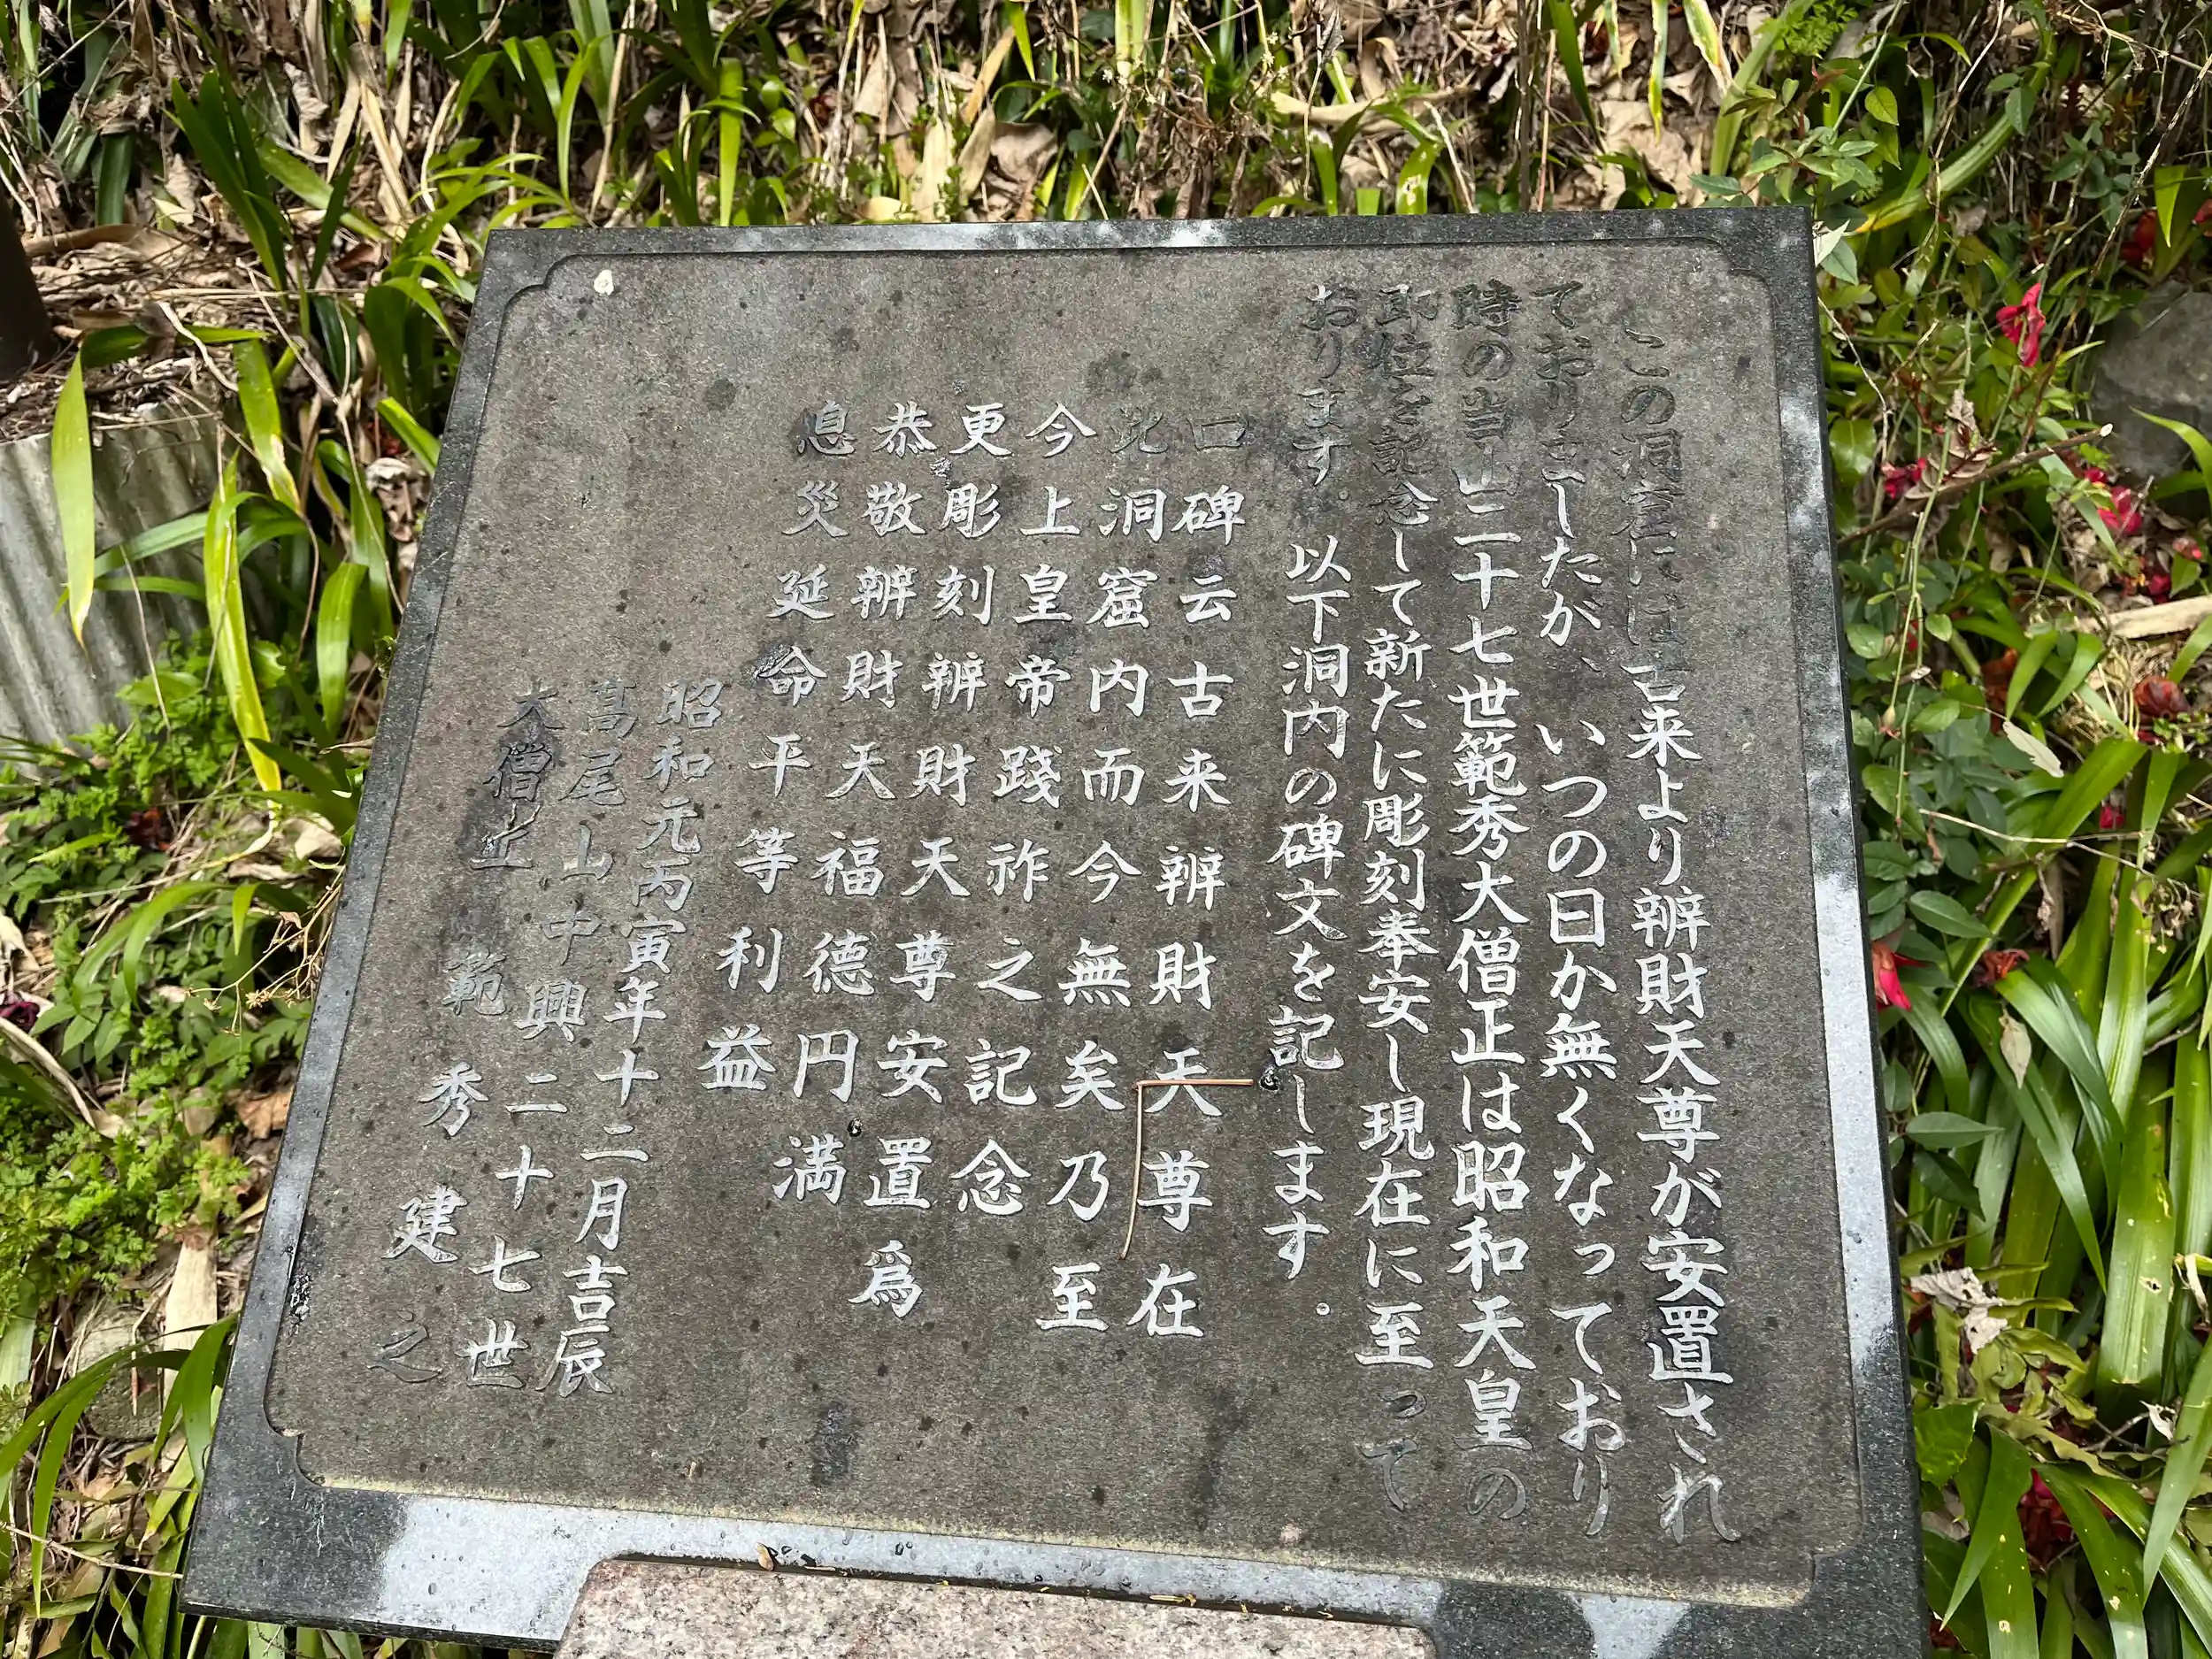 この洞窟には古来より辨財天尊が安置され
ておりましたが、いつの日か無くなっており
時の当山二十七世範秀大僧正は昭和天皇の
即位を記念して新たに彫刻奉安し現在に至って
おります。以下洞内の碑文を記します。
口碑云古来辨財天尊在
此洞窟内而今無矣乃至
今上皇帝踐祚之記念
更彫刻辨財天尊安置爲
恭敬辨財天福德円満
息災延命平等利益
昭和元丙寅年十二月吉辰
髙尾山中興二十七世
大僧正範秀建之